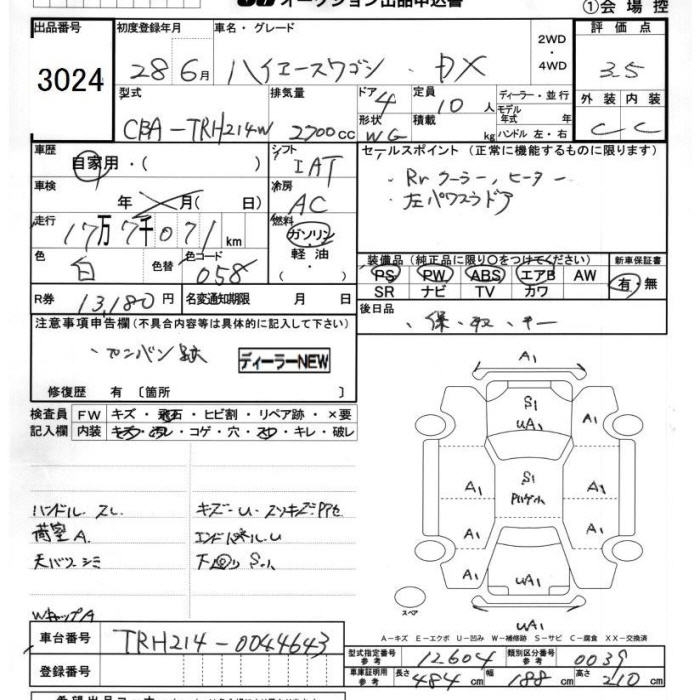 オークション出品申込書
①会場控
出品番号 初度登録年月 車名・グレード 2WD・4WD 評価点
3024 28年6月 ハイエースワゴン DX 3.5
型式 排気量 ドア 4 定員 10人 ディーラー・並行 外装 内装
CBA-TRH214W 2700cc 形状 WG 積載 kg モデル年式 年式 ハンドル 左・右 C C
車歴 自家用・( ) シフト IAT セールスポイント (正常に機能するものに限ります)
車検 年 月( 日) 冷房 AC ・Rrクーラー,ヒーター
・左パワースラドア
走行 17万7千071km 燃料 ガソリン・軽油・
色 白 色替 色コード 058 装備品(純正品に限り○をつけてください) 新車保証書
PS PW ABS エアB AW 有・無
SR ナビ TV カワ
R券 13,180円 名変通知期限 月 日 後日品
・保・取・キー
注意事項申告欄(不具合内容等は具体的に記入して下さい)
・カンバン跡 ディーラーNEW
修復歴 有 〔箇所 〕
検査員 FW キズ・飛石・ヒビ割・リペア跡・×要
記入欄 内装 キズ・汚レ・コゲ・穴・スレ・キレ・破レ
A1
S1
UA1
A1
S1
A1 A1
A1 A1
A1 A1
UA1
UA1
スペア
ハンドル スレ
荷室A
天バリシミ
WキャップA
エンドパネルU
下回りS
A-キズ E-エクボ U-凹み W-補修跡 S-サビ C-腐食 XX-交換済
車台番号 TRH214-0044643
登録番号
型式指定番号 参考 12604 類別区分番号 参考 0039
車庫証明用 参考 長さ 484cm 幅 188cm 高さ 210cm